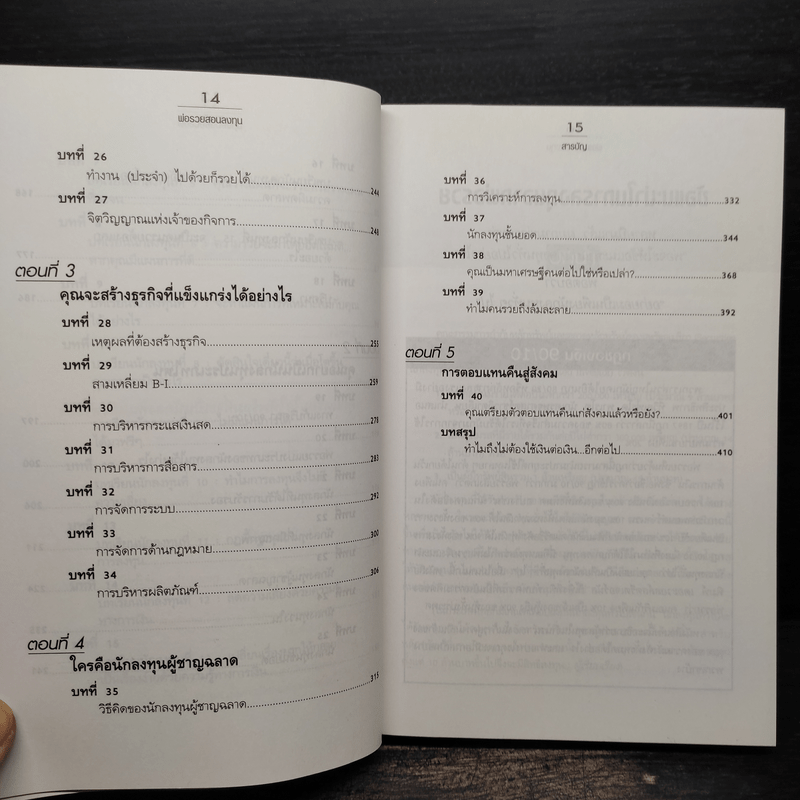 14
พ่อรวยสอนลงทุน
บทที่ 26
ทำงาน (ประจำ) ไปด้วยก็รวยได้.....244
บทที่ 27
จิตวิญญาณแห่งเจ้าของกิจการ.....248
ตอนที่ 3
คุณจะสร้างธุรกิจที่แข็งแกร่งได้อย่างไร
บทที่ 28
เหตุผลที่ต้องสร้างธุรกิจ.....253
บทที่ 29
สามเหลี่ยม B-I.....259
บทที่ 30
การบริหารกระแสเงินสด.....278
บทที่ 31
การบริหารการสื่อสาร.....283
บทที่ 32
การจัดการระบบ.....292
บทที่ 33
การจัดการด้านกฎหมาย.....300
บทที่ 34
การบริหารผลิตภัณฑ์.....306
ตอนที่ 4
ใครคือนักลงทุนผู้ชาญฉลาด
บทที่ 35
วิธีคิดของนักลงทุนผู้ชาญฉลาด.....315
15
สารบัญ
บทที่ 36
การวิเคราะห์การลงทุน.....332
บทที่ 37
นักลงทุนชั้นยอด.....344
บทที่ 38
คุณเป็นมหาเศรษฐีคนต่อไปใช่หรือเปล่า?.....368
บทที่ 39
ทำไมคนรวยถึงล้มละลาย.....392
ตอนที่ 5
การตอบแทนคืนสู่สังคม
บทที่ 40
คุณเตรียมตัวตอบแทนคืนแก่สังคมแล้วหรือยัง?.....401
บทสรุป
ทำไมถึงไม่ต้องใช้เงินต่อเงิน...อีกต่อไป.....410